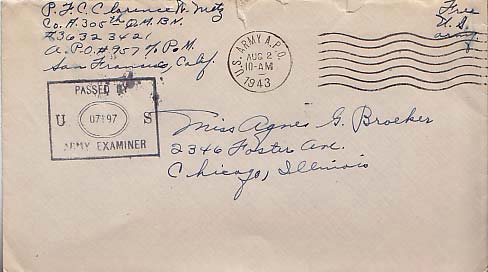 P.F.C. Clarence W. Metz
Co. A. 305th Q.M. BN.
#36323421
A.P.O. #957 % P.M.
San Francisco, Calif.
Free
U.S.
Army
U.S. ARMY A.P.O.
AUG 2
10-AM
1943
PASSED BY
U 07197 S
ARMY EXAMINER
Miss Agnes G. Broeker
2346 Foster Ave.
Chicago, Illinois